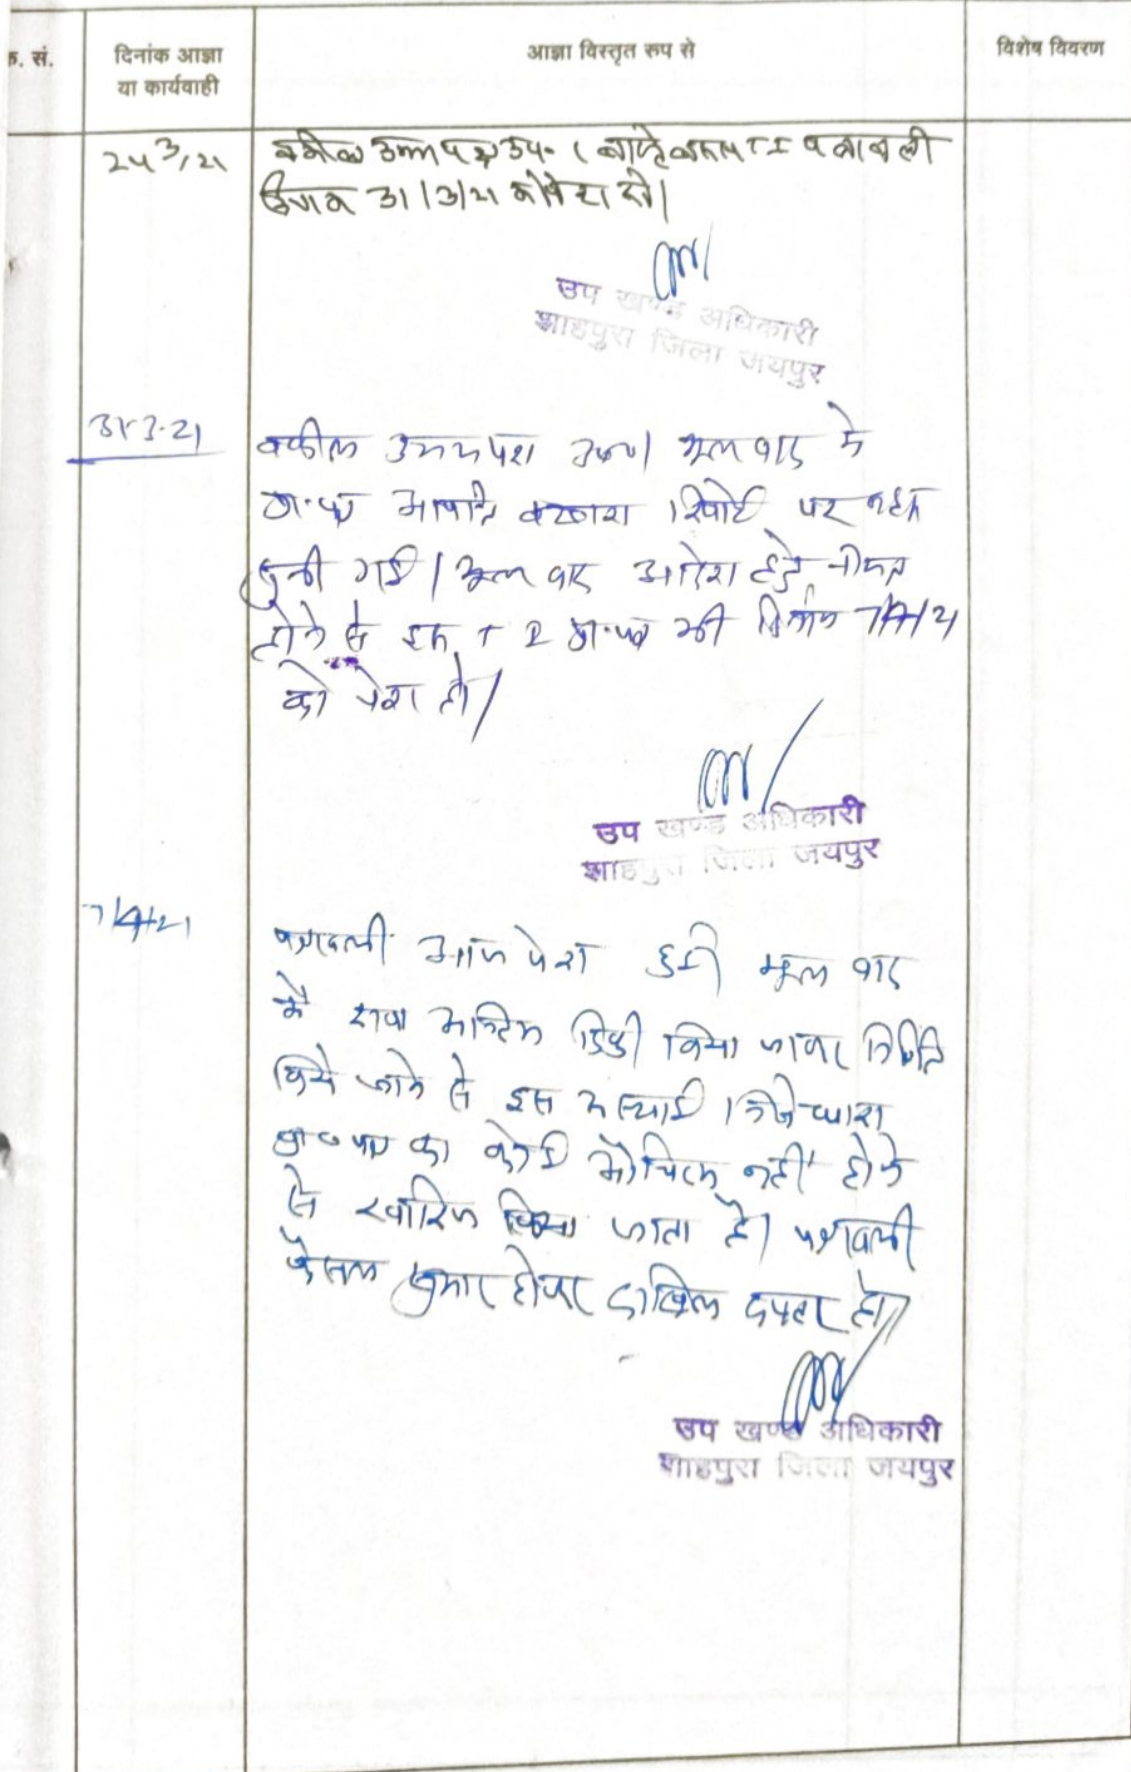 क. सं.
दिनांक आज्ञा
या कार्यवाही
आज्ञा विस्तृत रूप से
विशेष विवरण
24 3/21
वकील उभय पक्ष उप.। पत्रावली
दिनांक 31/3/21 को पेश हो।
उप खण्ड अधिकारी
शाहपुरा जिला जयपुर
31-3-21
वकील उभयपक्ष उप०। मूल वाद मे
प्रा.पत्र आपत्ति बटवारा रिपोर्ट पर बहस
सुनी गई। मूल वाद आदेश हेतु नियत
होने से इस T I प्रा.पत्र भी दिनांक 7/4/21
को पेश हो।
उप खण्ड अधिकारी
शाहपुरा जिला जयपुर
7/4/21
पत्रावली आज पेश हुई। मूल वाद
मे दावा अन्तिम डिक्री किया जाकर निर्णित
किये जाने से इस अस्थाई निषेधाज्ञा
प्रा० पत्र का कोई औचित्य नहीं होने
से खारिज किया जाता है। पत्रावली
फैसल शुमार होकर दाखिल दफ्तर हो।
उप खण्ड अधिकारी
शाहपुरा जिला जयपुर